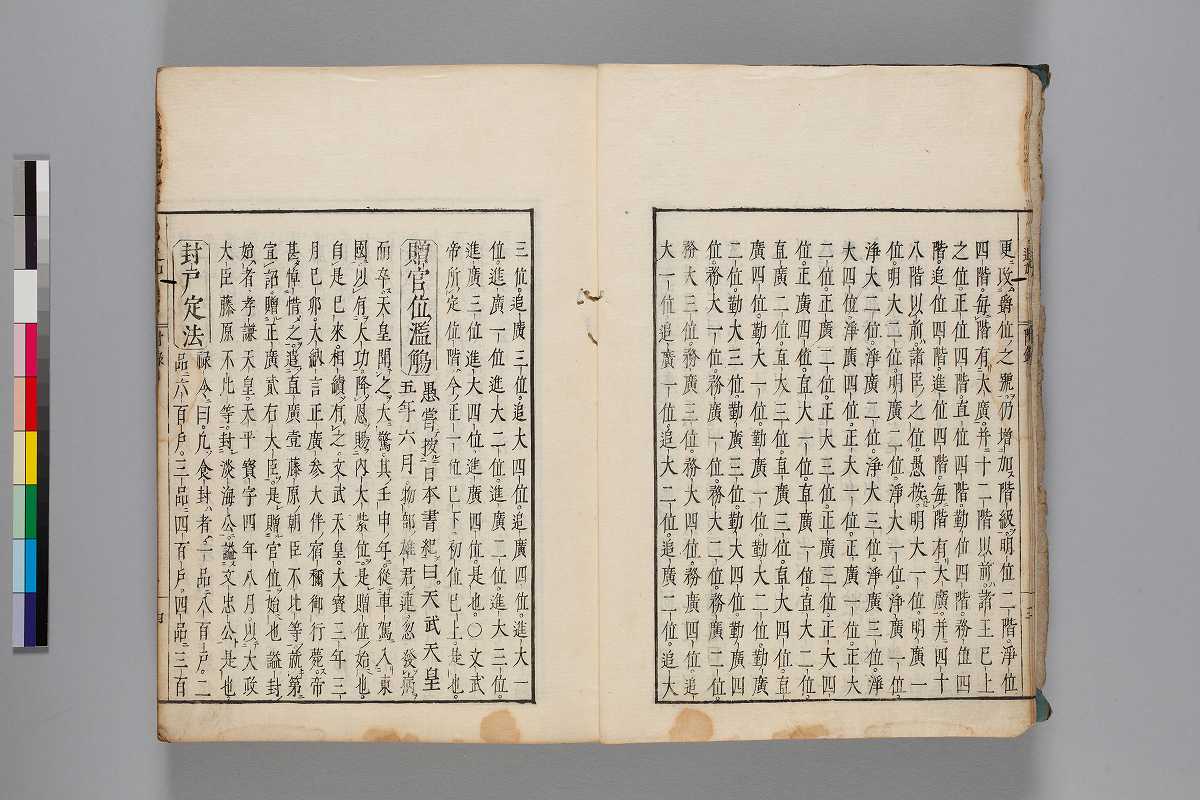 更改爵位之號仍增加階級明位二階淨位
四階每階有大廣并十二階以前諸王已上
之位正位四階直位四階勤位四階務位四
階追位四階進位四階每階有大廣并四十
八階以前諸臣之位愚按明大一位明廣一
位明大二位明廣二位淨大一位淨廣一位
淨大二位淨廣二位淨大三位淨廣三位淨
大四位淨廣四位正大一位正廣一位正大
二位正廣二位正大三位正廣三位正大四
位正廣四位直大一位直廣一位直大二位
直廣二位直大三位直廣三位直大四位直
廣四位勤大一位勤廣一位勤大二位勤廣
二位勤大三位勤廣三位勤大四位勤廣四
位務大一位務廣一位務大二位務廣二位
務大三位務廣三位務大四位務廣四位追
大一位追廣一位追大二位追廣二位追大
三位追廣三位追大四位追廣四位進大一
位進廣一位進大二位進廣二位進大三位
進廣三位進大四位進廣四位是也〇文武
帝所定位階今正一位已下初位已上是也
贈官位濫觴 愚嘗按日本書紀曰天武天皇
五年六月物部雄君連忽發病
而卒天皇聞之大驚其壬申年從車駕入東
國以有大功降恩賜內大紫位是贈位始也
自是已來相續有之文武天皇大寶三年三
月已卯大納言正廣參大伴宿禰御行薨帝
甚悼惜之遣直廣壹藤原朝臣不比等就第
宣詔贈正廣貳右大臣是贈官位始也謚封
始者孝謙天皇天平寶字四年八月以大政
大臣藤原不比等封淡海公謚文忠公是也
封戸定法 祿令曰凡食封者一品八百戸二
品六百戸三品四百戸四品三百